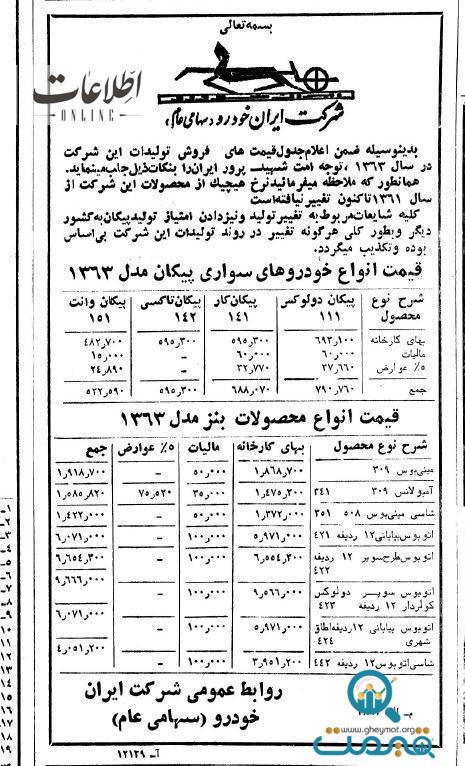 بسمه تعالی
اطلاعات
ONLINE
شرکت ایران خودرو «سهامی عام»
بدینوسیله ضمن اعلام جدول قیمت های فروش تولیدات این شرکت
در سال ۱۳۶۳، توجه امت شهید پرور ایران را بنکات ذیل جلب مینماید.
همانطور که ملاحظه میفرمائید نرخ هیچیک از محصولات این شرکت از
سال ۱۳۶۱ تاکنون تغییر نیافته است
کلیه شایعات مربوط به تغییر تولید و نیز دادن امتیاز تولید پیکان به کشور
دیگر و بطور کلی هرگونه تغییر در روند تولیدات این شرکت بی اساس
بوده و تکذیب میگردد.
قیمت انواع خودروهای سواری پیکان مدل ۱۳۶۳
شرح نوع محصول پیکان دولوکس ۱۱۱ پیکان کار ۱۴۱ پیکان تاکسی ۱۴۲ پیکان وانت ۱۵۱
بهای کارخانه ۶۹۳٫۱۰۰ ۵۹۵٫۳۰۰ ۵۹۵٫۳۰۰ ۴۸۲٫۷۰۰
مالیات ۶۰٫۰۰۰ ۶۰٫۰۰۰ – ۱۵٫۰۰۰
۵٪ عوارض ۳۷٫۶۶۰ ۳۲٫۷۷۰ – ۲۴٫۸۹۰
جمع ۷۹۰٫۷۶۰ ۶۸۸٫۰۷۰ ۵۹۵٫۳۰۰ ۵۲۲٫۵۹۰
قیمت انواع محصولات بنز مدل ۱۳۶۳
شرح نوع محصول بهای کارخانه مالیات ۵٪ عوارض جمع
مینی بوس ۳۰۹ ۱٫۸۶۸٫۷۰۰ ۵۰٫۰۰۰ – ۱٫۹۱۸٫۷۰۰
آمبولانس ۳۰۹ ۳۴۱ ۱٫۴۷۵٫۳۰۰ ۳۵٫۰۰۰ ۷۵٫۵۲۰ ۱٫۵۸۵٫۸۲۰
شاسی مینی بوس ۵۰۸ ۳۵۱ ۱٫۳۷۲٫۰۰۰ ۵۰٫۰۰۰ – ۱٫۴۲۲٫۰۰۰
اتوبوس بیابانی ۱۲ ردیفه ۴۲۱ ۵٫۹۷۱٫۰۰۰ ۱۰۰٫۰۰۰ – ۶٫۰۷۱٫۰۰۰
اتوبوس طرح سوپر ۱۲ ردیفه ۴۲۲ ۶٫۵۵۴٫۳۰۰ ۱۰۰٫۰۰۰ – ۶٫۶۵۴٫۳۰۰
اتوبوس سوپر دولوکس کولردار ۱۲ ردیفه ۴۲۳ ۹٫۵۶۶٫۰۰۰ ۱۰۰٫۰۰۰ – ۹٫۶۶۶٫۰۰۰
اتوبوس بیابانی ۱۲ ردیفه اطاق شهری ۴۲۴ ۵٫۹۷۱٫۰۰۰ ۱۰۰٫۰۰۰ – ۶٫۰۷۱٫۰۰۰
شاسی اتوبوس ۱۲ ردیفه ۴۴۲ ۳٫۹۵۱٫۲۰۰ ۱۰۰٫۰۰۰ – ۴٫۰۵۱٫۲۰۰
روابط عمومی شرکت ایران
خودرو (سهامی عام)
آ- ۱۲۱۲۹
www.gheymat.org
قیمت